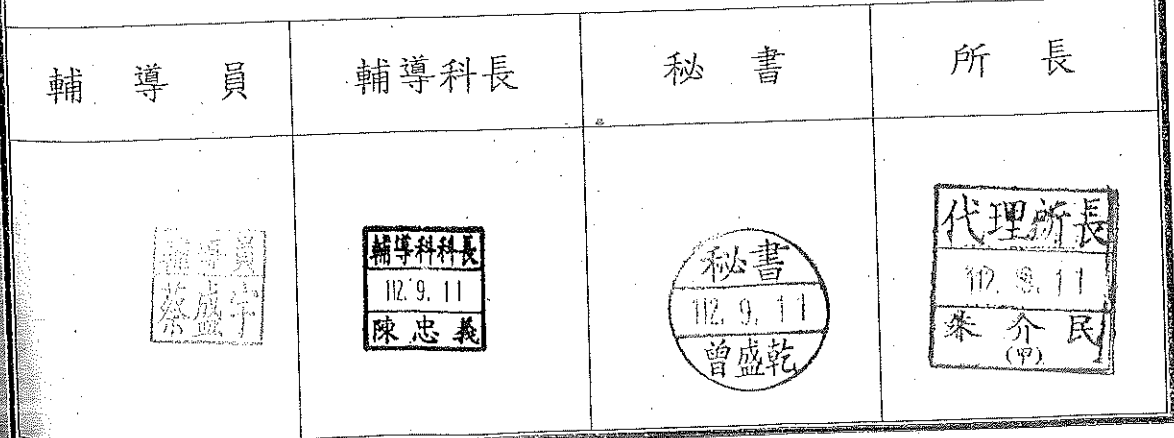 輔導員
輔導科長
秘書
所長
輔導員
蔡盛宇
輔導科科長
112.9.11
陳忠義
秘書
112.9.11
曾盛乾
代理所長
112.9.11
朱介民
(甲)